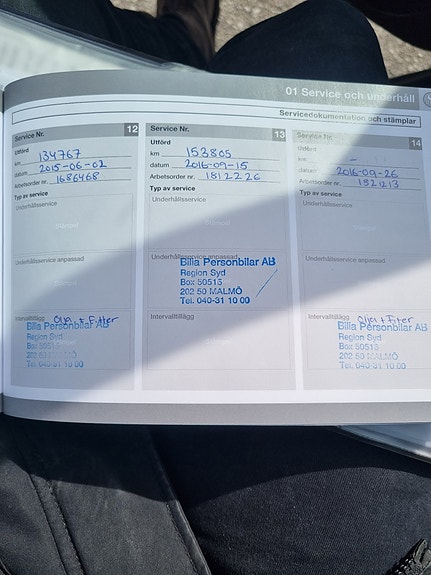 01 Service och underhåll
Servicedokumentation och stämplar
Service Nr. 12
Utförd
km 134767
datum 2015-06-02
Arbetsorder nr. 1686468
Typ av service
Underhållsservice
Stämpel
Underhållsservice anpassad
Intervalltillägg Olja + Filter
Bilia Personbilar AB
Region Syd
Box 50515
202 50 MALMÖ
Tel. 040-31 10 00
Service Nr. 13
Utförd
km 153805
datum 2016-09-15
Arbetsorder nr. 1812226
Typ av service
Underhållsservice
Stämpel
Underhållsservice anpassad
Bilia Personbilar AB
Region Syd
Box 50515
202 50 MALMÖ
Tel. 040-31 10 00
Intervalltillägg
Service Nr. 14
Utförd
km -
datum 2016-09-26
Arbetsorder nr. 1821213
Typ av service
Underhållsservice
Underhållsservice anpassad
Intervalltillägg Olja + Filter
Bilia Personbilar AB
Region Syd
Box 50515
202 50 MALMÖ
Tel. 040-31 10 00